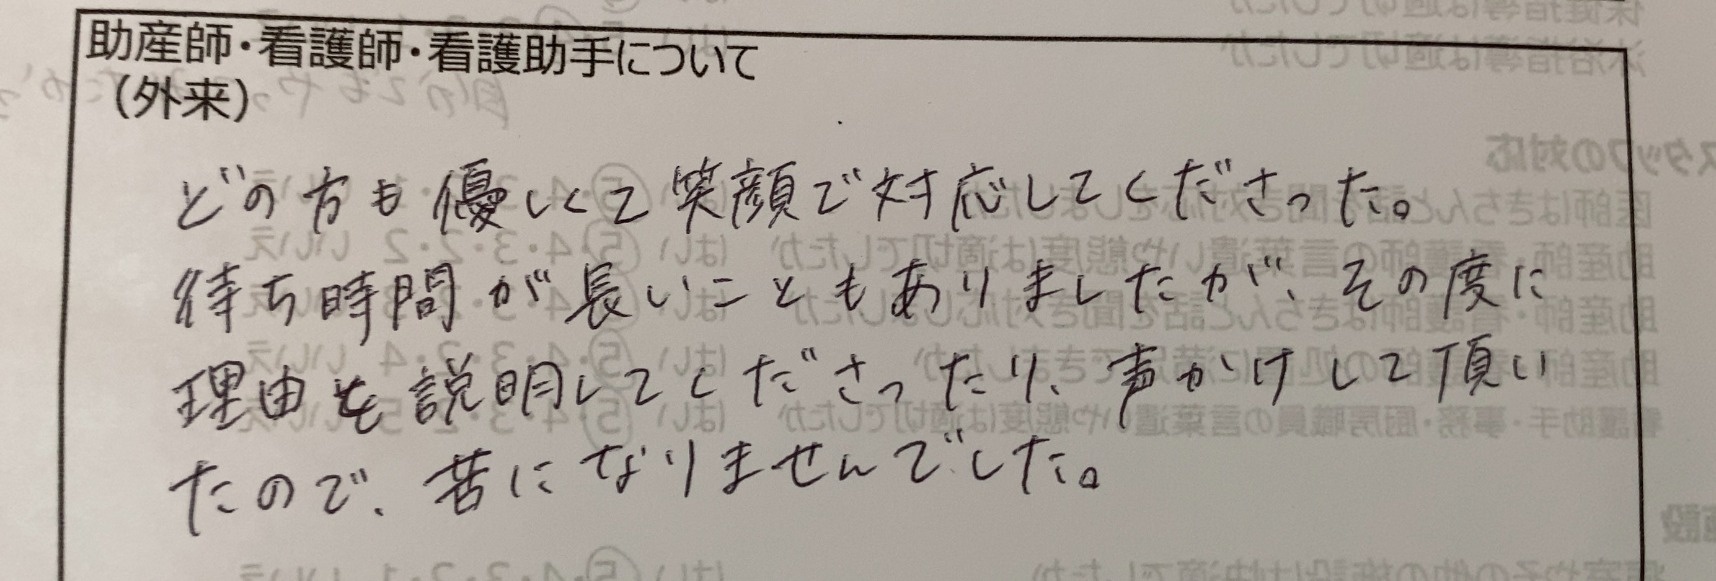 助産師・看護師・看護助手について
（外来）
どの方も優しくて笑顔で対応してくださった。
待ち時間が長いこともありましたが、その度に
理由を説明してくださったり、声かけして頂い
たので、苦になりませんでした。